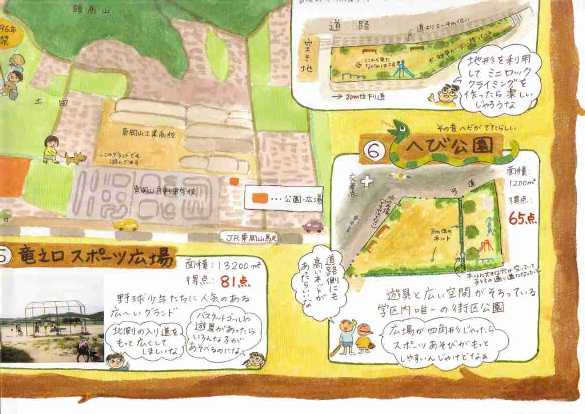 龍ノ口山
道路
空き地
地形を利用
して ミニロック
クライミングを
作ったら楽しい
じゃろうな
土田
東岡山工業高校
…公園・広場
JR東岡山駅
その昔 へびがでたらしい
⑥ へび公園
面積：
1200㎡
得点：
65点
道路側にも
高いネットが
あったらいいな
遊具と広い空間がそろっている
学区内唯一の街区公園
広場が四角形じゃったら
スポーツあそびがもっと
しやすいんじゃけどなあ
竜之口スポーツ広場
面積：13200㎡
得点：81点
野球少年たちに人気のある
広〜いグランド
北側の入り道を
もっと広くして
ほしいな
バスケットゴールや
遊具があったら
いろんな子が
あそべるのになぁ